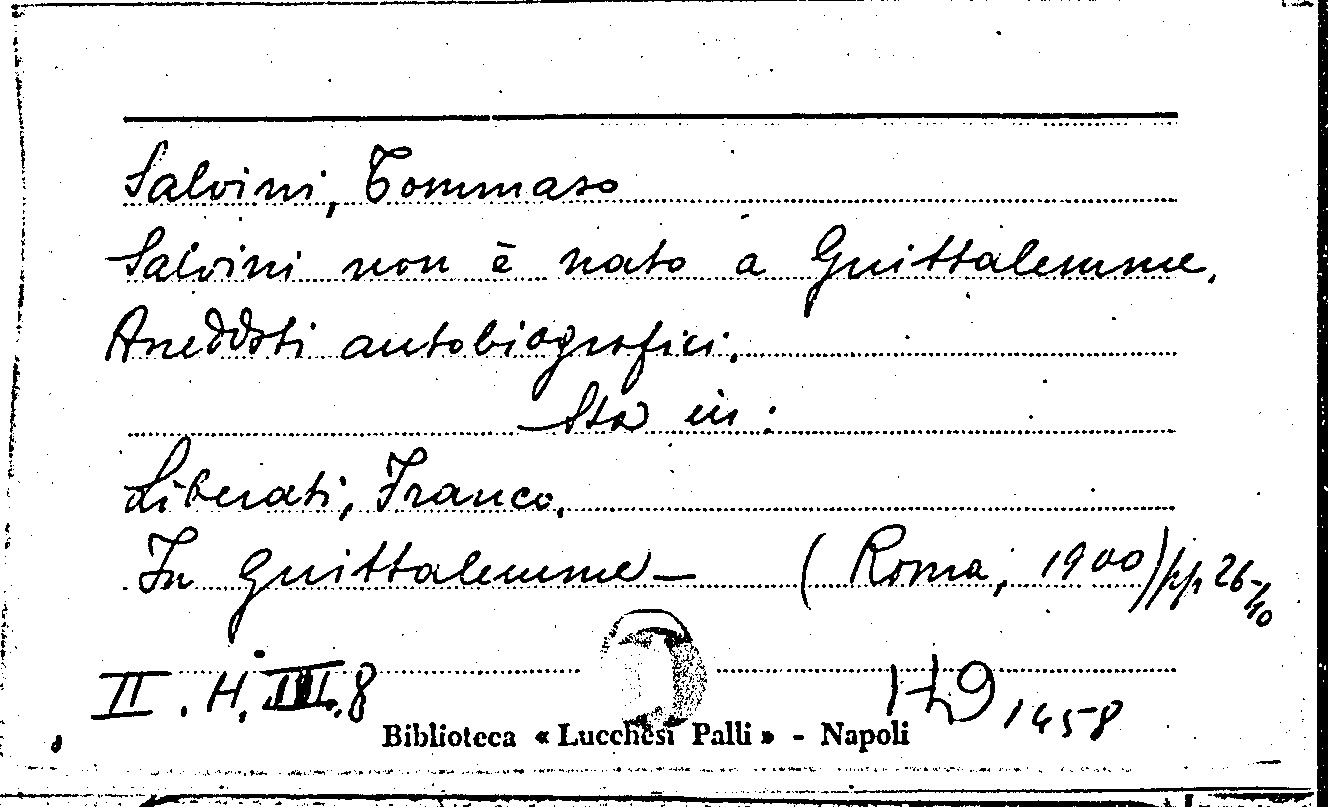 Salvini, Tommaso
Salvini non è nato a Guittalemme.
Aneddoti autobiografici.
Sta in:
Liberati, Franco.
In Guittalemme — (Roma, 1900) pp 26-
II. H. III.8
1458
Biblioteca « Lucchesi Palli » - Napoli